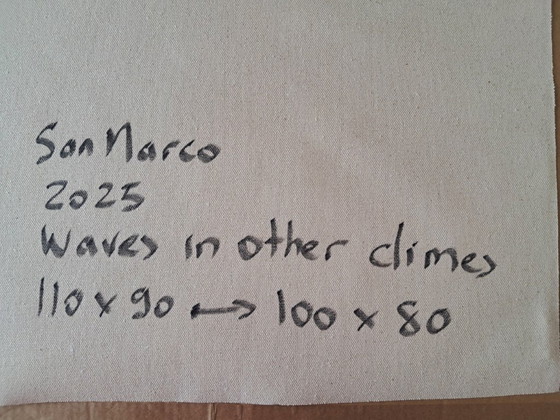 San Marco
2025
Waves in other climes
110 x 90 <–> 100 x 80